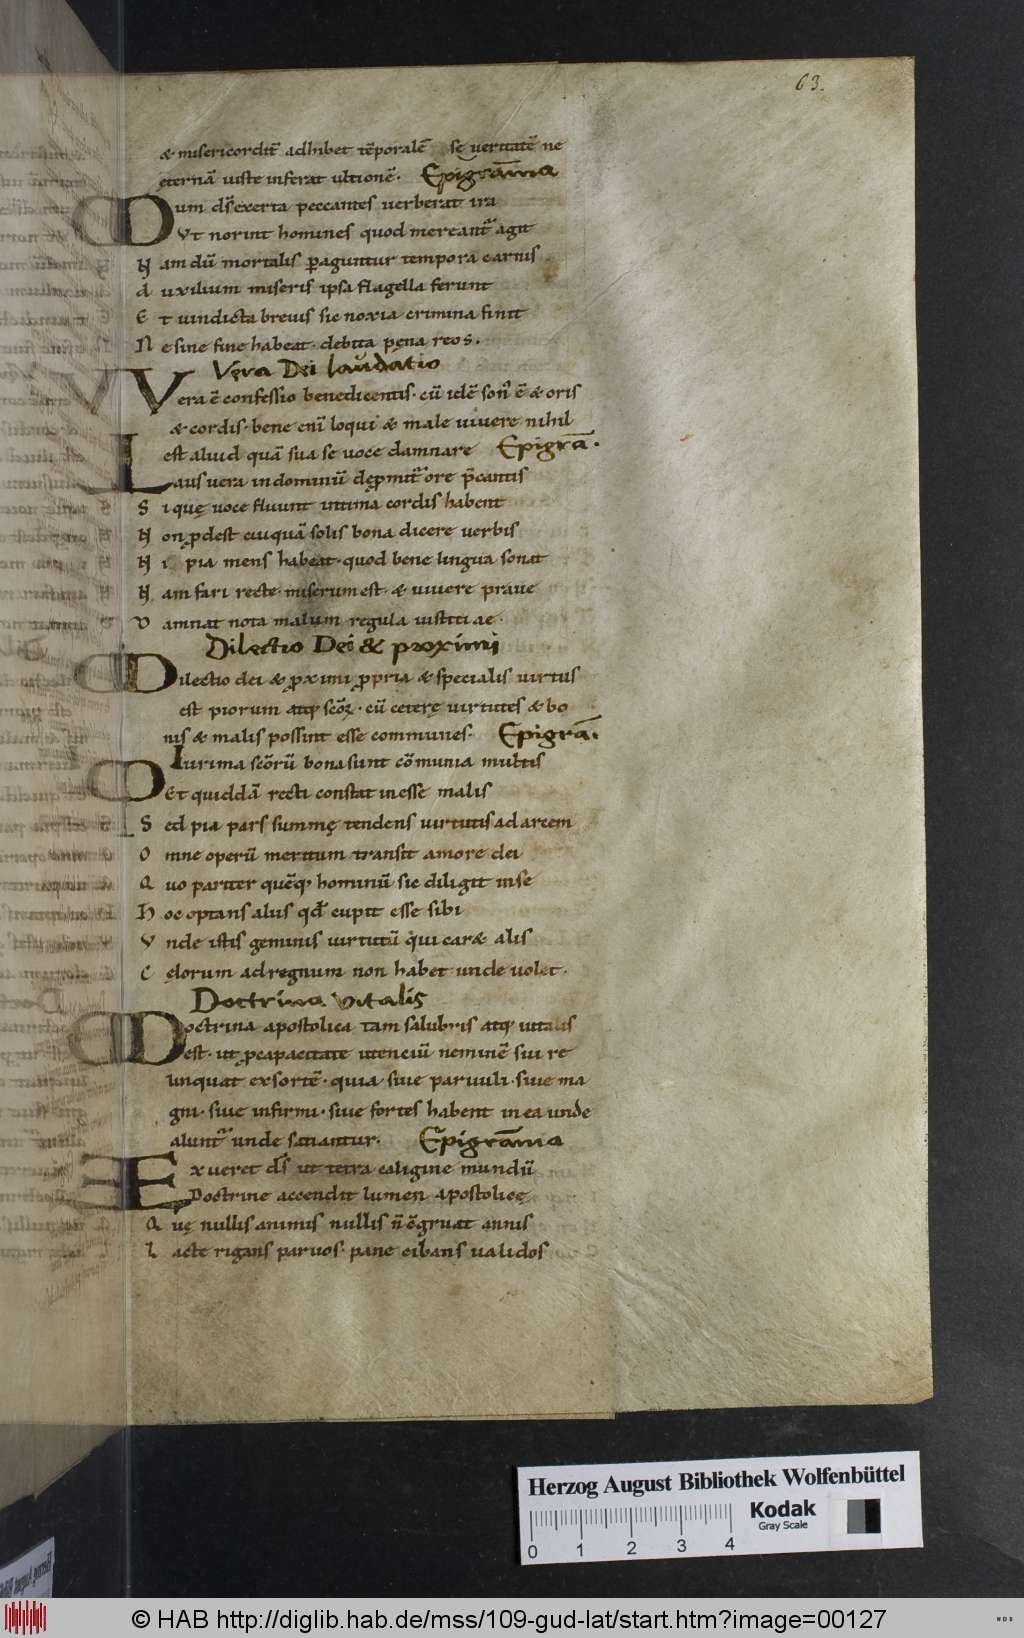 63.
& misericordit̄ adhibet tēporalē se ueritatē ne
ęternā iuste inferat ultionē. Epigrāma
Dum dn̄s exerta peccantes uerberat ira
Vt norint homines quod mereant᷑ agit
N am dū mortalis ꝑaguntur tempora carnis
a uxilium miseris ipsa flagella ferunt
E t uindicta breuis sic noxia crimina finit
N e sine fine habeat debita pęna reos.
Vera Dei laudatio
Vera ē confessio benedicentis. cū idē son᷒ ē & oris
& cordis. bene eni loqui & male uiuere nihil
est aliud quā sua se uoce damnare Epigrā.
Laus uera in dominū dępmit᷑ ore p̄cantis
S i quę uoce fluunt intima cordis habent
N on ꝓdest cuiquā solis bona dicere uerbis
N i pia mens habeat. quod bene lingua sonat
N am fari recte. miserum est. & uiuere praue
D amnat nota malum regula iustitiae.
Dilectio Dei & proximi
Dilectio dei & ꝓximi ꝓpria & specialis uirtus
est piorum atq; scōꝝ. cū ceterę uirtutes & bo
nis & malis possint esse communes. Epigrā.
Plurima scōrū bona sunt cōmunia multis
Et quiddā recti constat inesse malis
S ed pia pars summę tendens uirtutis ad arcem
O mne operū meritum transit amore dei
Q uo pariter quēq; hominū sic diligit in se
H oc optans aliis qd̄ cupit esse sibi
V nde istis geminis uirtutū qui car& alis
C ęlorum ad regnum non habet unde uolet.
Doctrina vitalis
Doctrina apostolica tam salubris atq; uitalis
est. ut ꝓ capacitate utenciū neminē sui re
linquat exsortē. quia siue paruuli. siue ma
gni. siue infirmi. siue fortes habent in ea unde
alunt᷑ unde satiantur. Epigrāma
Exueret dn̄s ut tetra caligine mundū
Doctrine accendit lumen apostolicę
Q uę nullis animis nullis n̄ c̄gruat annis
L acte rigans paruos. pane cibans ualidos
Herzog August Bibliothek Wolfenbüttel
0 1 2 3 4
Kodak
Gray Scale
© HAB http://diglib.hab.de/mss/109-gud-lat/start.htm?image=00127